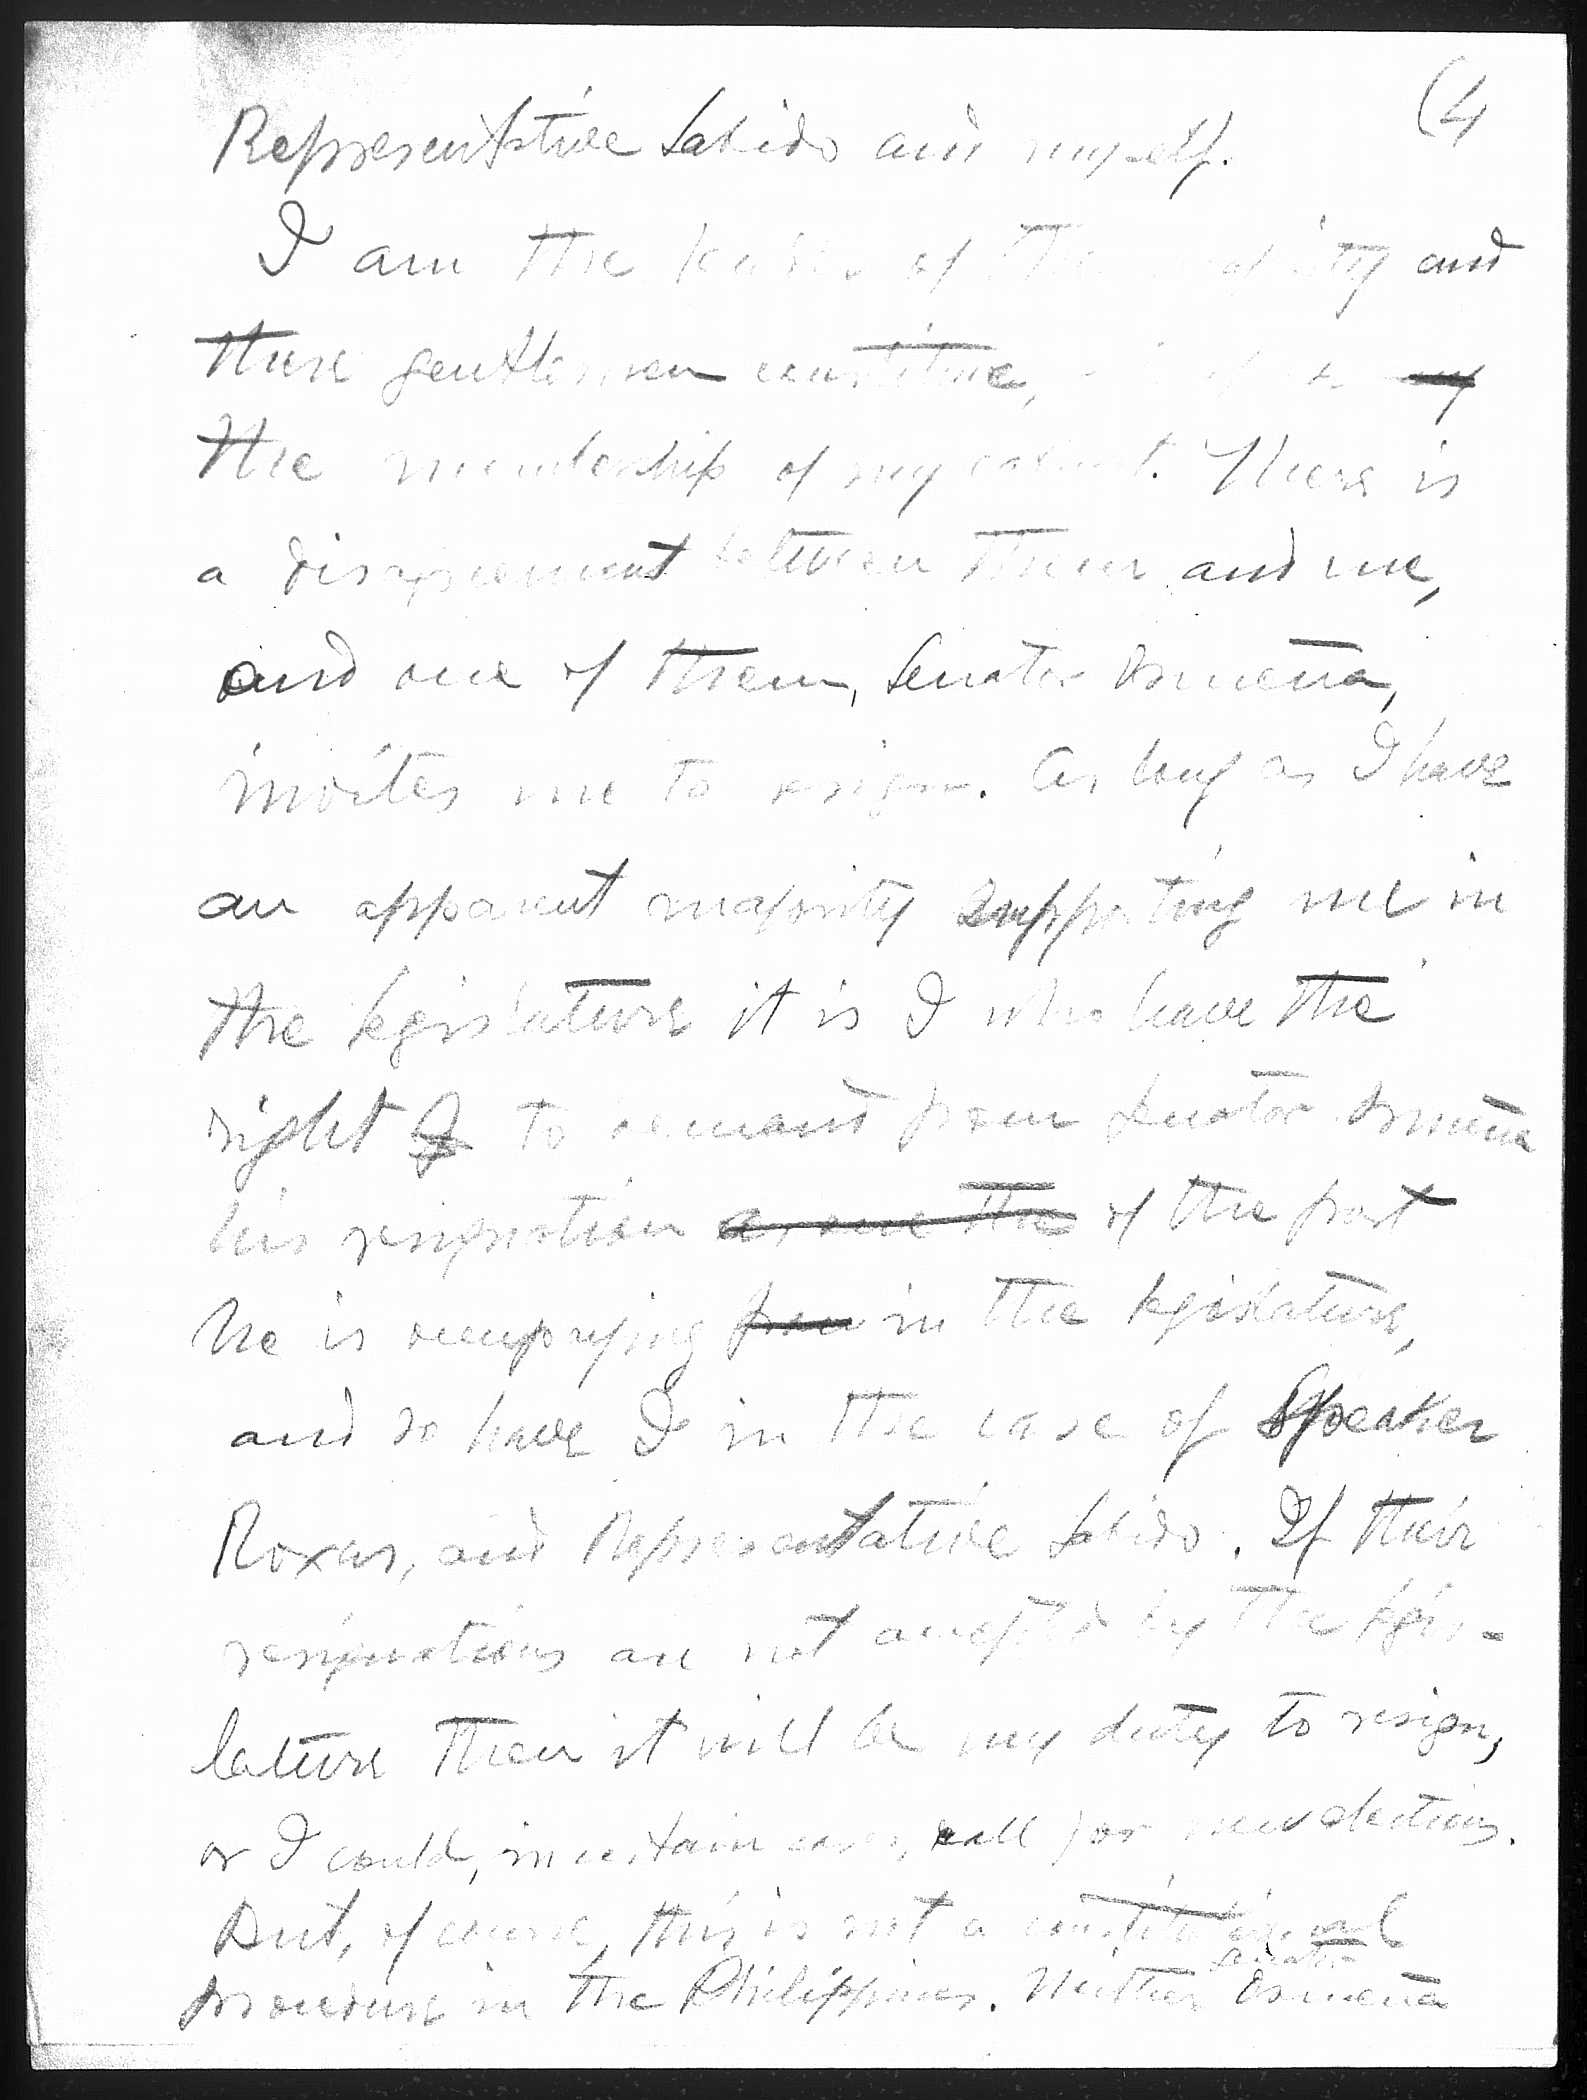 (4
Representative Sabido and myself.
I am the leader of the majority and
these gentlemen constitute, my
the membership of my cabinet. There is
a disagreement between them and me,
and one of them, Senator Osmeña,
invites me to resign. As long as I have
an apparent majority supporting me in
the legislature it is I who have the
right I to demand from Senator Osmeña
his resignation as one the of the post
he is occupying from in the legislature,
and so have I in the case of Speaker
Roxas, and Representative Sabido. If their
resignations are not accepted by the legis-
lature then it will be my duty to resign,
or I could, in certain cases, call for new elections.
But, of course, this is not a constitutional
senator
procedure in the Philippines. Neither Osmeña